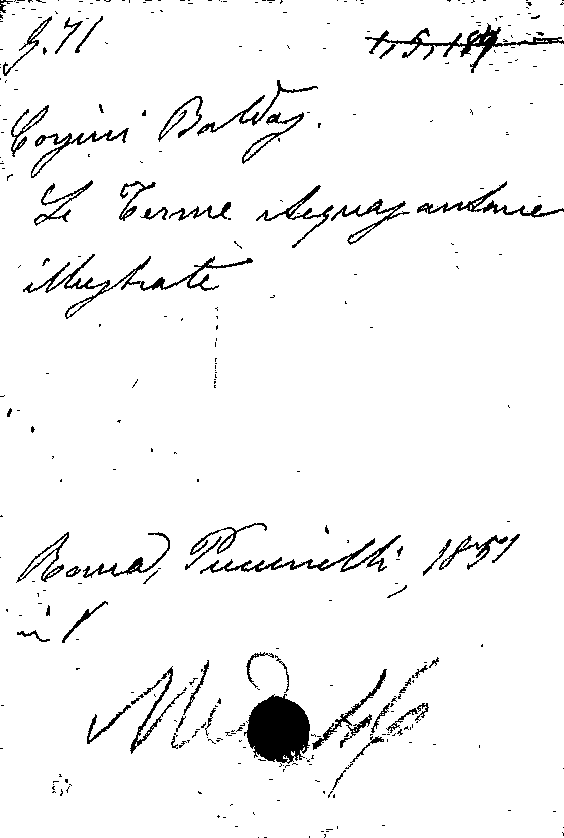 G.71 1,5,184
Corsini Baldas.
Le Terme Acquasantane
illustrate
Roma, Puccinelli, 1851
in 8
Med